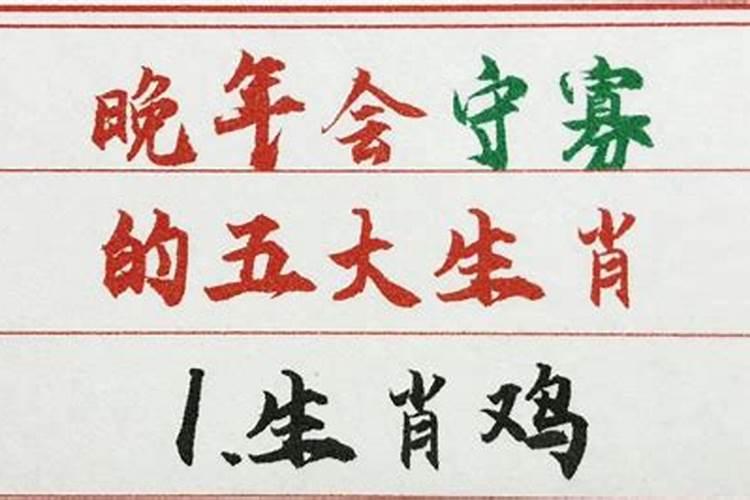 晚年会守寡
的五大生肖
1.生肖鸡